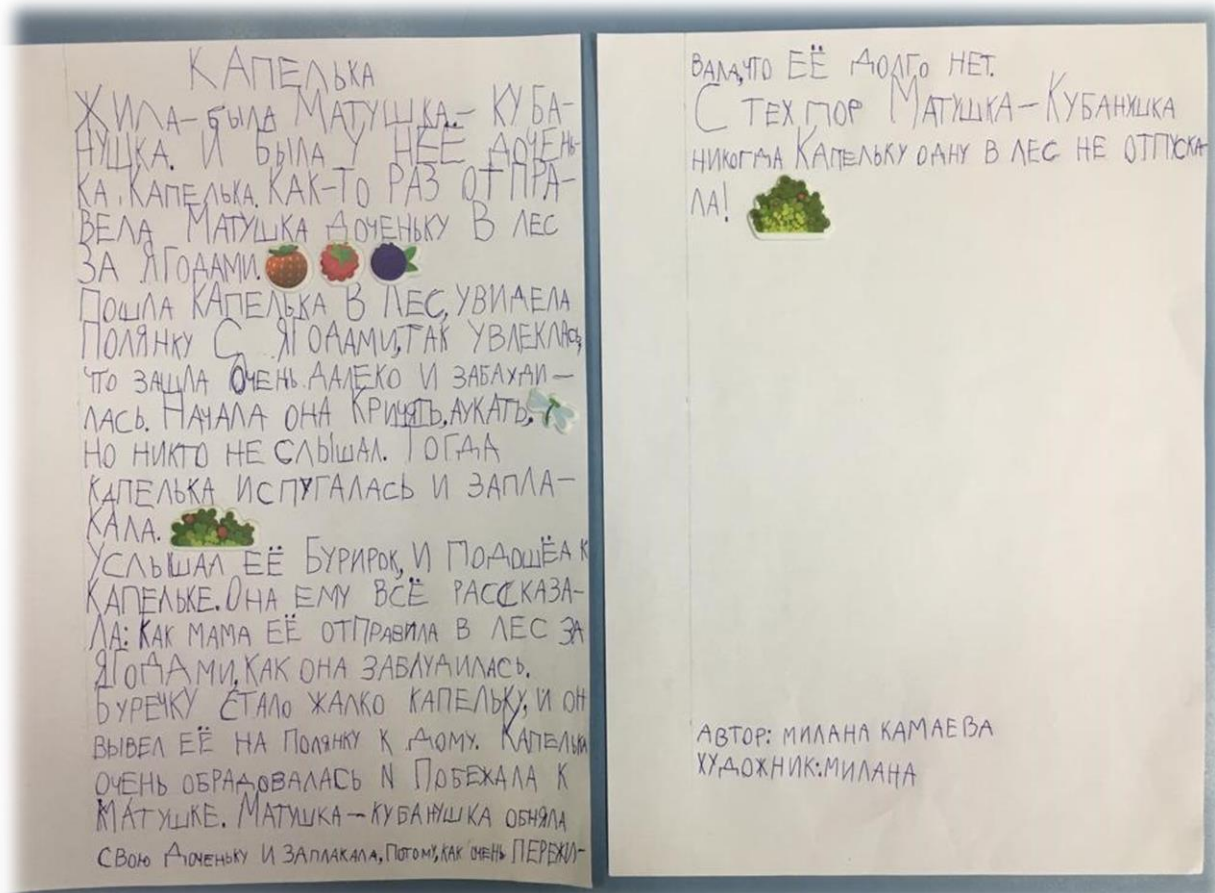 КАПЕЛЬКА
ЖИЛА-БЫЛА МАТУШКА - КУБА-
НУШКА. И БЫЛА У НЕЁ ДОЧЕНЬ-
КА КАПЕЛЬКА. КАК-ТО РАЗ ОТПРА-
ВЕЛА МАТУШКА ДОЧЕНЬКУ В ЛЕС
ЗА ЯГОДАМИ.
ПОШЛА КАПЕЛЬКА В ЛЕС, УВИДЕЛА
ПОЛЯНКУ С ЯГОДАМИ, ТАК УВЛЕКЛАСЬ,
ЧТО ЗАШЛА ОЧЕНЬ ДАЛЕКО И ЗАБЛУДИ-
ЛАСЬ. НАЧАЛА ОНА КРИЧАТЬ, АУКАТЬ,
НО НИКТО НЕ СЛЫШАЛ. ТОГДА
КАПЕЛЬКА ИСПУГАЛАСЬ И ЗАПЛА-
КАЛА.
УСЛЫШАЛ ЕЁ БУРИРОК, И ПОДОШЁЛ К
КАПЕЛЬКЕ. ОНА ЕМУ ВСЁ РАССКАЗА-
ЛА: КАК МАМА ЕЁ ОТПРАВИЛА В ЛЕС ЗА
ЯГОДАМИ, КАК ОНА ЗАБЛУДИЛАСЬ.
БУРЕЧКУ СТАЛО ЖАЛКО КАПЕЛЬКУ, И ОН
ВЫВЕЛ ЕЁ НА ПОЛЯНКУ К ДОМУ. КАПЕЛЬКА
ОЧЕНЬ ОБРАДОВАЛАСЬ И ПОБЕЖАЛА К
МАТУШКЕ. МАТУШКА - КУБАНУШКА ОБНЯЛА
СВОЮ ДОЧЕНЬКУ И ЗАПЛАКАЛА, ПОТОМУ, КАК ОЧЕНЬ ПЕРЕЖИ-
ВАЛА, ЧТО ЕЁ ДОЛГО НЕТ.
С ТЕХ ПОР МАТУШКА - КУБАНУШКА
НИКОГДА КАПЕЛЬКУ ОДНУ В ЛЕС НЕ ОТПУСКА-
ЛА!
АВТОР: МИЛАНА КАМАЕВА
ХУДОЖНИК: МИЛАНА